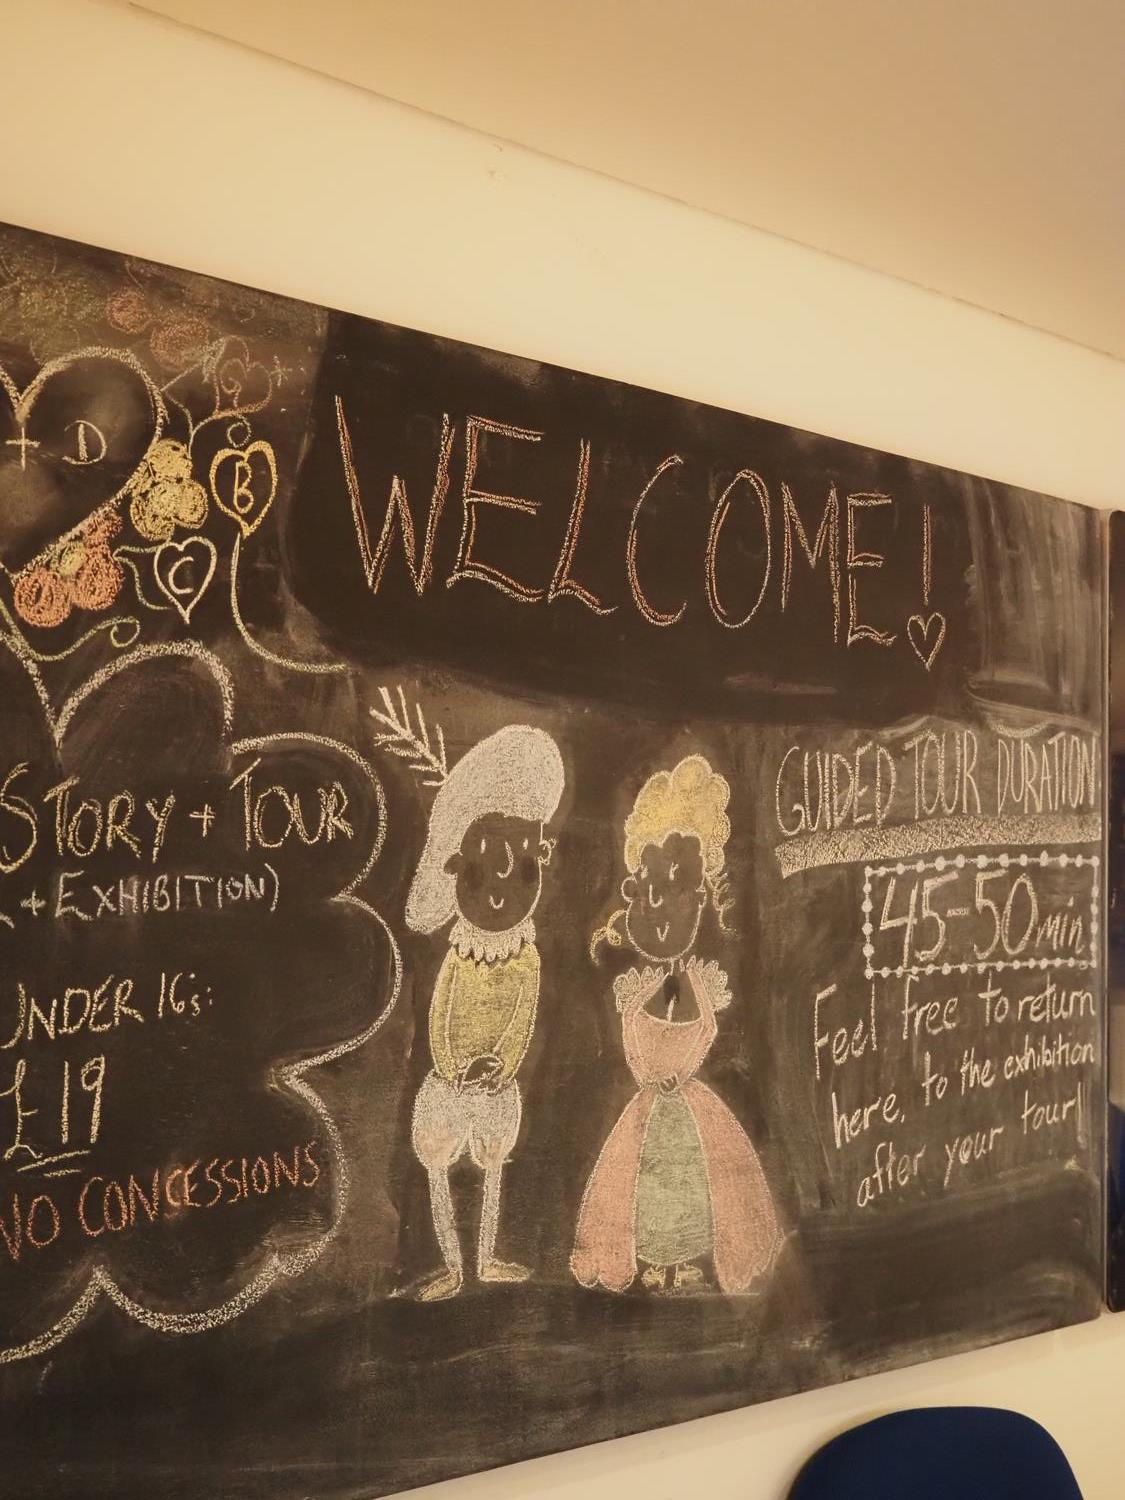 + D
G +
B
C
WELCOME!
STORY + TOUR
+ EXHIBITION)
UNDER 16s:
£19
NO CONCESSIONS
GUIDED TOUR DURATION
45-50min
Feel free to return
here, to the exhibition
after your tour!